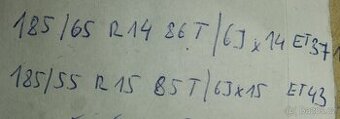 185/65 R14 86T/6J x 14 ET37
185/55 R15 85T/6Jx15 ET43